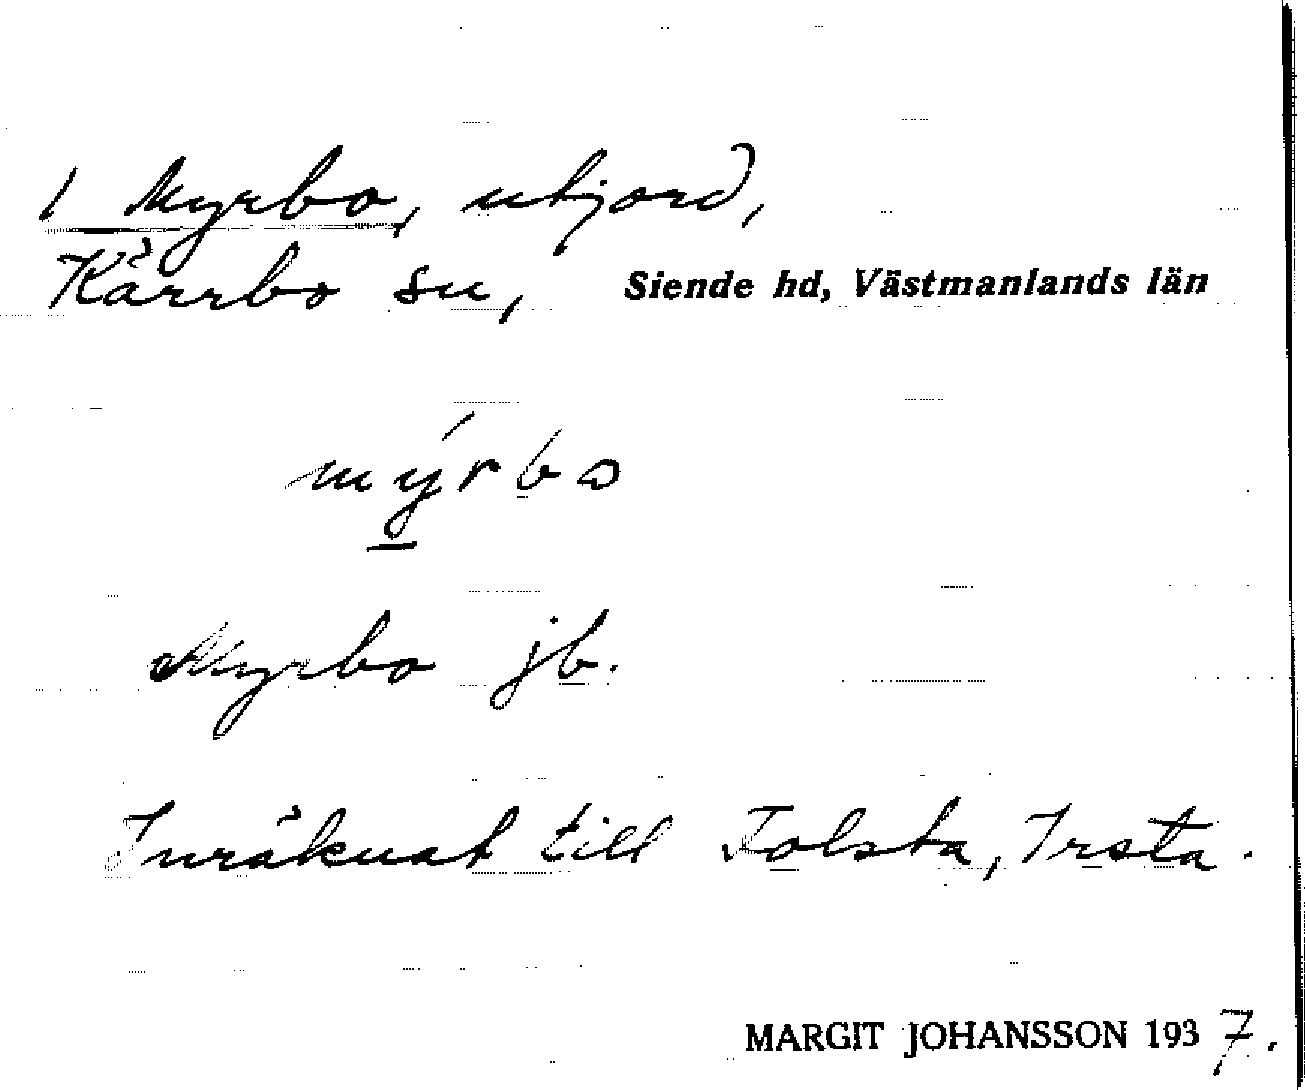 1 Myrbo, utjord,
Kärrbo sn, Siende hd, Västmanlands län
mýrbo
Myrbo jb.
Inräknat till Tolsta, Irsta.
MARGIT JOHANSSON 1937.